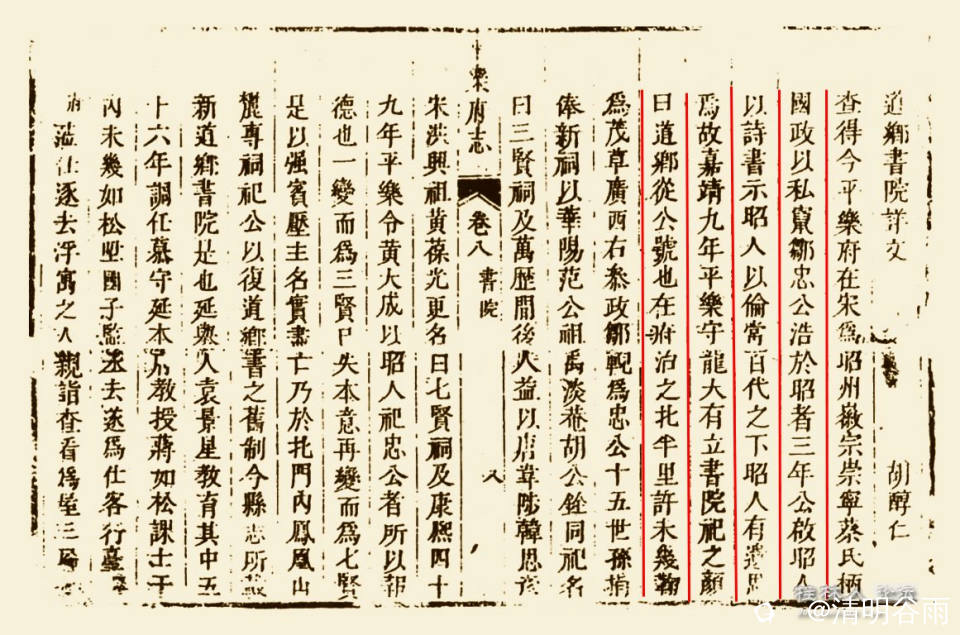 道鄉書院詳文 胡醇仁
查得今平樂府在宋爲昭州徽宗崇寧蔡氏柄
國政以私竄鄒忠公浩於昭者三年公啟昭人
以詩書示昭人以倫常百代之下昭人有遺思
焉故嘉靖九年平樂守龍大有立書院祀之顏
曰道鄉從公號也在府治之北半里許未幾鞠
爲茂草廣西右叅政鄒輗爲忠公十五世孫捐
俸新祠以華陽范公祖禹淡菴胡公銓同祀名
曰三賢祠及萬歷間後人益以唐韋陟韓思彥
宋洪興祖黃葆光更名曰七賢祠及康熙四十
九年平樂令黃大成以昭人祀忠公者所以報
德也一變而爲三賢已失本意再變而爲七賢
足以强賓壓主名實盡亡乃於北門內鳳凰山
麓專祠祀公以復道鄉書之舊制今縣志所載
新道鄉書院是也延舉人袁景星教育其中五
十六年調任慕守延本府教授蔣如松課士于
內未幾如松陞國子監丞去遂爲仕客行臺
蒞任逐去浮寓之人親詣查看爲屋三層
樂府志
卷八 書院
八
桂林人 論壇
@清明谷雨